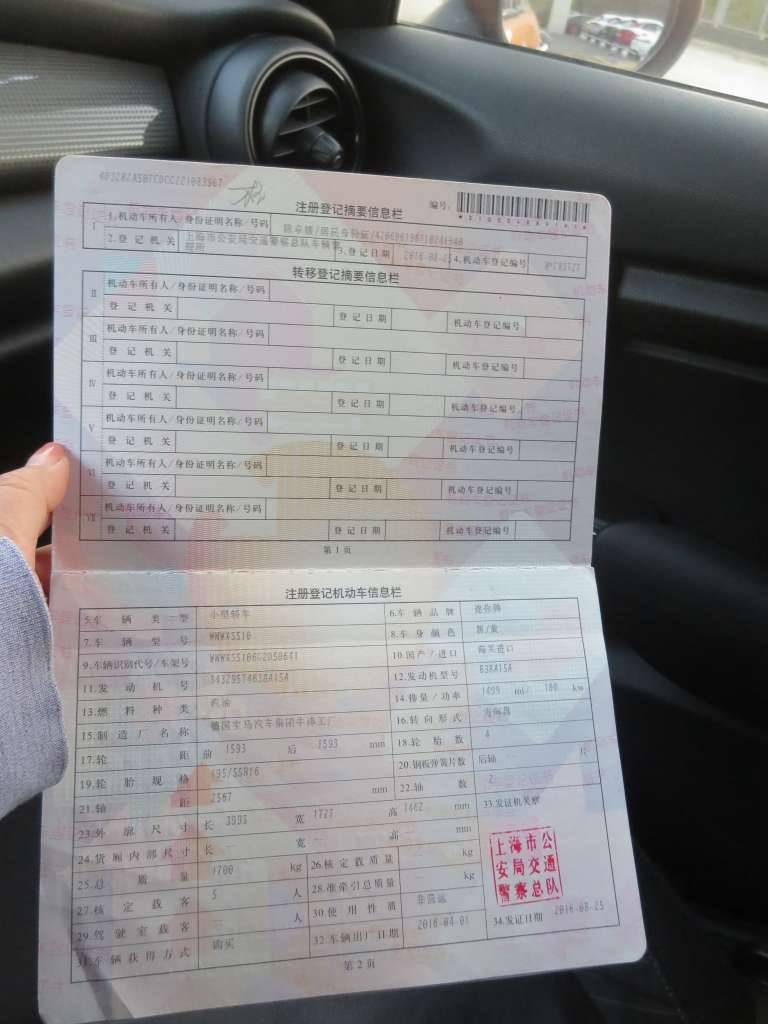 注册登记摘要信息栏
编号:
I 1.机动车所有人/身份证明名称/号码
2.登记机关 上海市公安局交通警察总队车辆管理所 3.登记日期 2016-08-25 4.机动车登记编号
转移登记摘要信息栏
II 机动车所有人/身份证明名称/号码
登记机关 登记日期 机动车登记编号
III 机动车所有人/身份证明名称/号码
登记机关 登记日期 机动车登记编号
IV 机动车所有人/身份证明名称/号码
登记机关 登记日期 机动车登记编号
V 机动车所有人/身份证明名称/号码
登记机关 登记日期 机动车登记编号
VI 机动车所有人/身份证明名称/号码
登记机关 登记日期 机动车登记编号
VII 机动车所有人/身份证明名称/号码
登记机关 登记日期 机动车登记编号
第1页
注册登记机动车信息栏
5.车辆类型 小型轿车 6.车辆品牌 迷你牌
7.车辆型号 WMWXS510 8.车身颜色
9.车辆识别代号/车架号 10.国产/进口
11.发动机号 12.发动机型号 B38A15A
13.燃料种类 汽油 14.排量/功率 1499 ml/ 100 kw
15.制造厂名称 16.转向形式 方向盘
17.轮距 前 1593 后 1593 mm 18.轮胎数 4
19.轮胎规格 195/55R16 20.钢板弹簧片数 后轴 片
21.轴距 2567 mm 22.轴数 2
23.外廓尺寸 长 3993 宽 1727 高 1462 mm 33.发证机关章
24.货厢内部尺寸 长 宽 高 mm
25.总质量 1700 kg 26.核定载质量 kg
27.核定载客 5 人 28.准牵引总质量 kg
29.驾驶室载客 人 30.使用性质 非营运
31.车辆获得方式 购买 32.车辆出厂日期 2016-04-01 34.发证日期 2016-08-25
上海市公
安局交通
警察总队
第2页